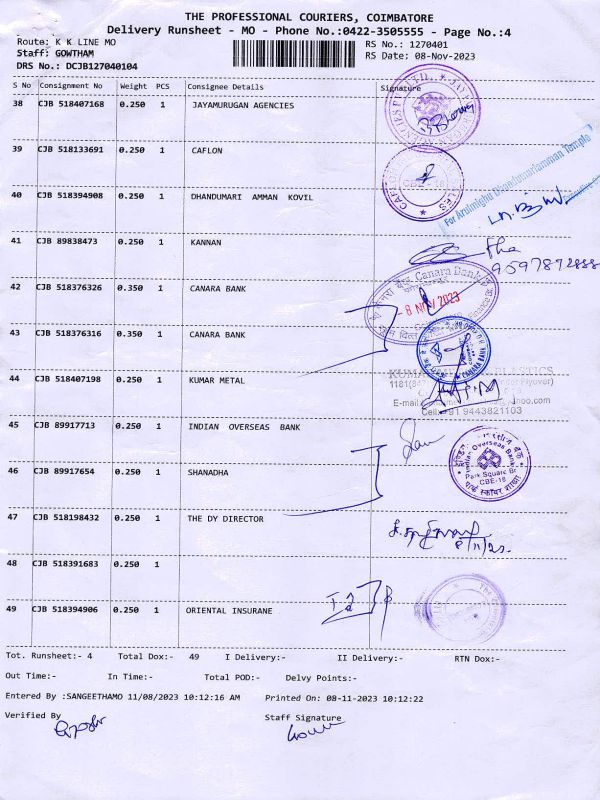 THE PROFESSIONAL COURIERS, COIMBATORE
Delivery Runsheet - MO - Phone No.:0422-3505555 - Page No.:4
Route: K K LINE MO
RS No.: 1270401
Staff: GOWTHAM
RS Date: 08-Nov-2023
DRS No.: DCJB127040104
S No Consignment No Weight PCS Consignee Details Signature
38 CJB 518407168 0.250 1 JAYAMURUGAN AGENCIES
39 CJB 518133691 0.250 1 CAFLON
CBE-18
For Arulmighu Dhandumariamman Temple
40 CJB 518394908 0.250 1 DHANDUMARI AMMAN KOVIL
41 CJB 89838473 0.250 1 KANNAN
9597872888
42 CJB 518376326 0.350 1 CANARA BANK
Canara Bank
- 8 NOV 2023
43 CJB 518376316 0.350 1 CANARA BANK
44 CJB 518407198 0.250 1 KUMAR METAL
E-mail
Cell:+91 9443821103
45 CJB 89917713 0.250 1 INDIAN OVERSEAS BANK
Indian Overseas Bank
Park Square Br
CBE-18
पार्क स्क्वेयर शाखा
46 CJB 89917654 0.250 1 SHANADHA
47 CJB 518198432 0.250 1 THE DY DIRECTOR
8/11/23.
48 CJB 518391683 0.250 1
49 CJB 518394906 0.250 1 ORIENTAL INSURANE
Tot. Runsheet:- 4 Total Dox:- 49 I Delivery:- II Delivery:- RTN Dox:-
Out Time:- In Time:- Total POD:- Delvy Points:-
Entered By :SANGEETHAMO 11/08/2023 10:12:16 AM Printed On: 08-11-2023 10:12:22
Verified By
Staff Signature